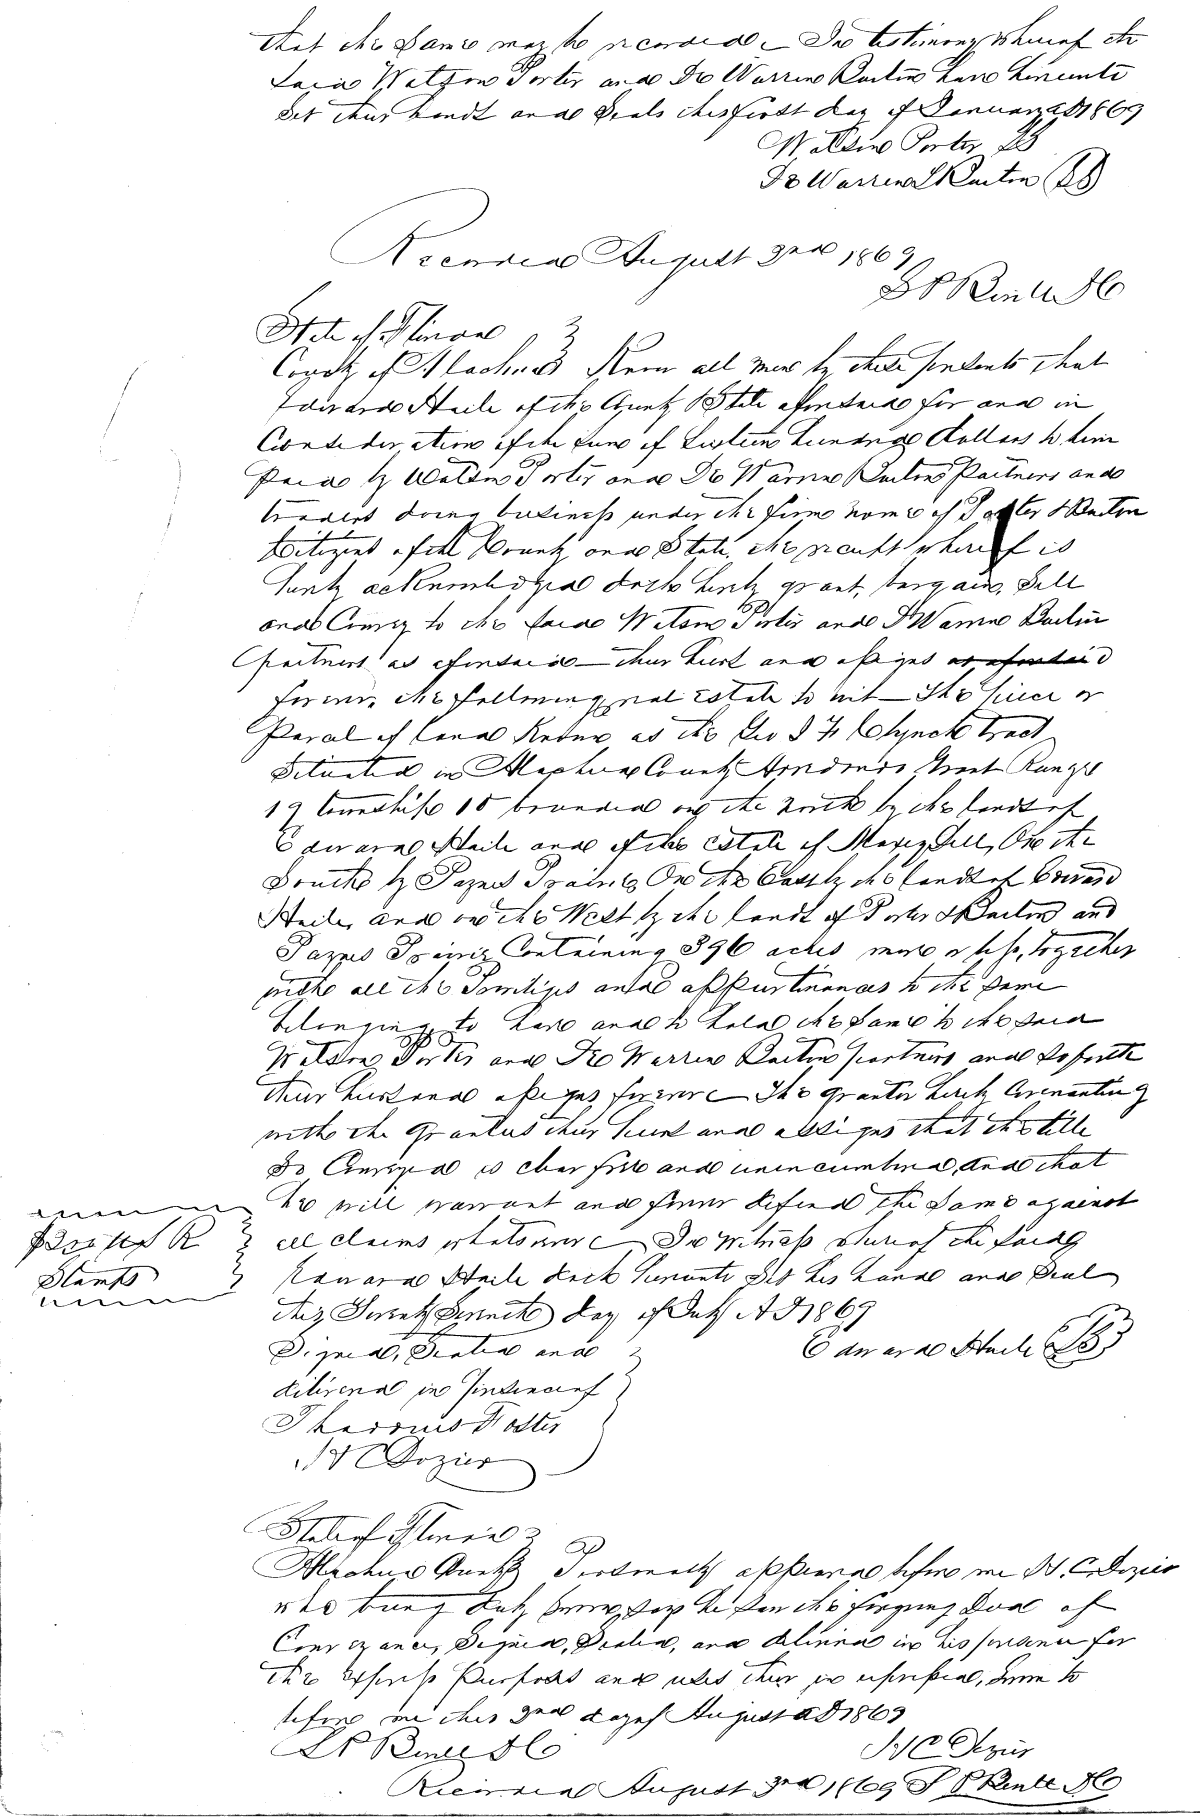 that the same may be recorded - In testimony whereof the
said Watson Porter and Do Warren Barton have hereunto
set thur hands and seals this first day of January AD 1869
Watson Porter LS
Do Warren Barton LS
Recorded August 3rd 1869
State of Florida
County of Alachua Know all men by these presents that
Edward Haile of the County & State aforesaid for and in
Consideration of the sum of hundred dollars to him
Paid by Watson Porter and Do Warren Barton Partners and
traders doing business under the firm name of Porter & Barton
Citizens of the County and State, the receipt whereof is
hereby acknowledged doth hereby grant, bargain, sell
and Convey to the said Watson Porter and D Warren Barton
Partners as aforesaid - thur heirs and assigns as aforesaid
forever, the following real estate to wit - The piece or
Parcel of land Known as the tract
Situated in Alachua County Range
19 township 10 bounded on the north by the lands of
Edward Haile and of the estate of On the
South by Paynes Prairie, On the East by the lands of Edward
Haile, and on the West by the lands of Porter & Barton and
Paynes Prairie Containing 396 acres more or less, together
with all the and appurtinances to the same
belonging, to have and to hold the same to the said
Watson Porter and Do Warren Barton partners and so forth
thur heirs and assigns forever - The grantor hereby Covenanting
with the grantees thur heirs and assigns that the title
So Conveyed is clear free and unencumbered, and that
he will warrant and forever defend the same against
all claims whatsoever - In witness whereof the said
Edward Haile doth hereunto set his hand and seal
this Twenty Seventh day of July A D 1869
Edward Haile LS
Signed, Sealed and
delivered in presence of
Foster
H C Dozier
R
Stamps
State of Florida
Alachua County Personally appeared before me H. C. Dozier
who being duly sworn, says he saw the foregoing Deed of
Conveyance, Signed, Sealed, and delivered in his presence for
the express Purposes and uses thur in expressed, sworn to
before me this 3rd day of August AD 1869
H C Dozier
Recorded August 3rd 1869